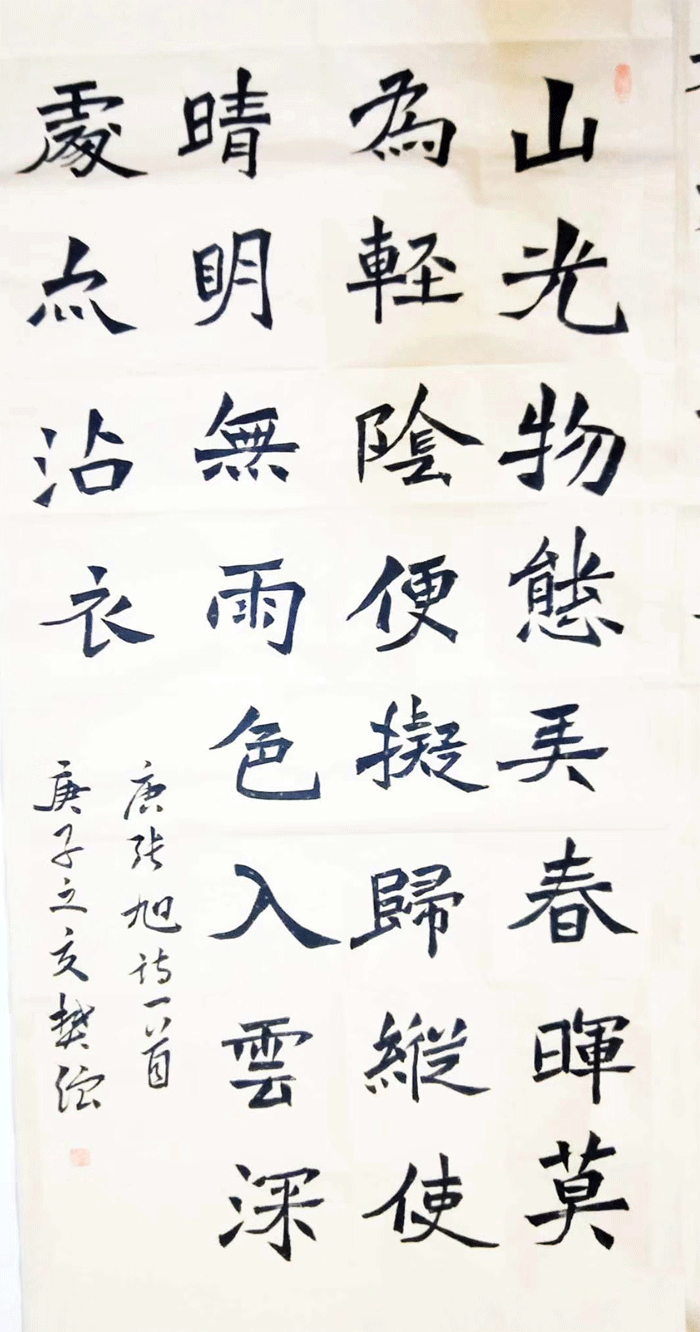 山光物態弄春暉莫
為輕陰便擬歸縱使
晴明無雨色入雲深
處亦沾衣
唐張旭詩一首
庚子之夏樊